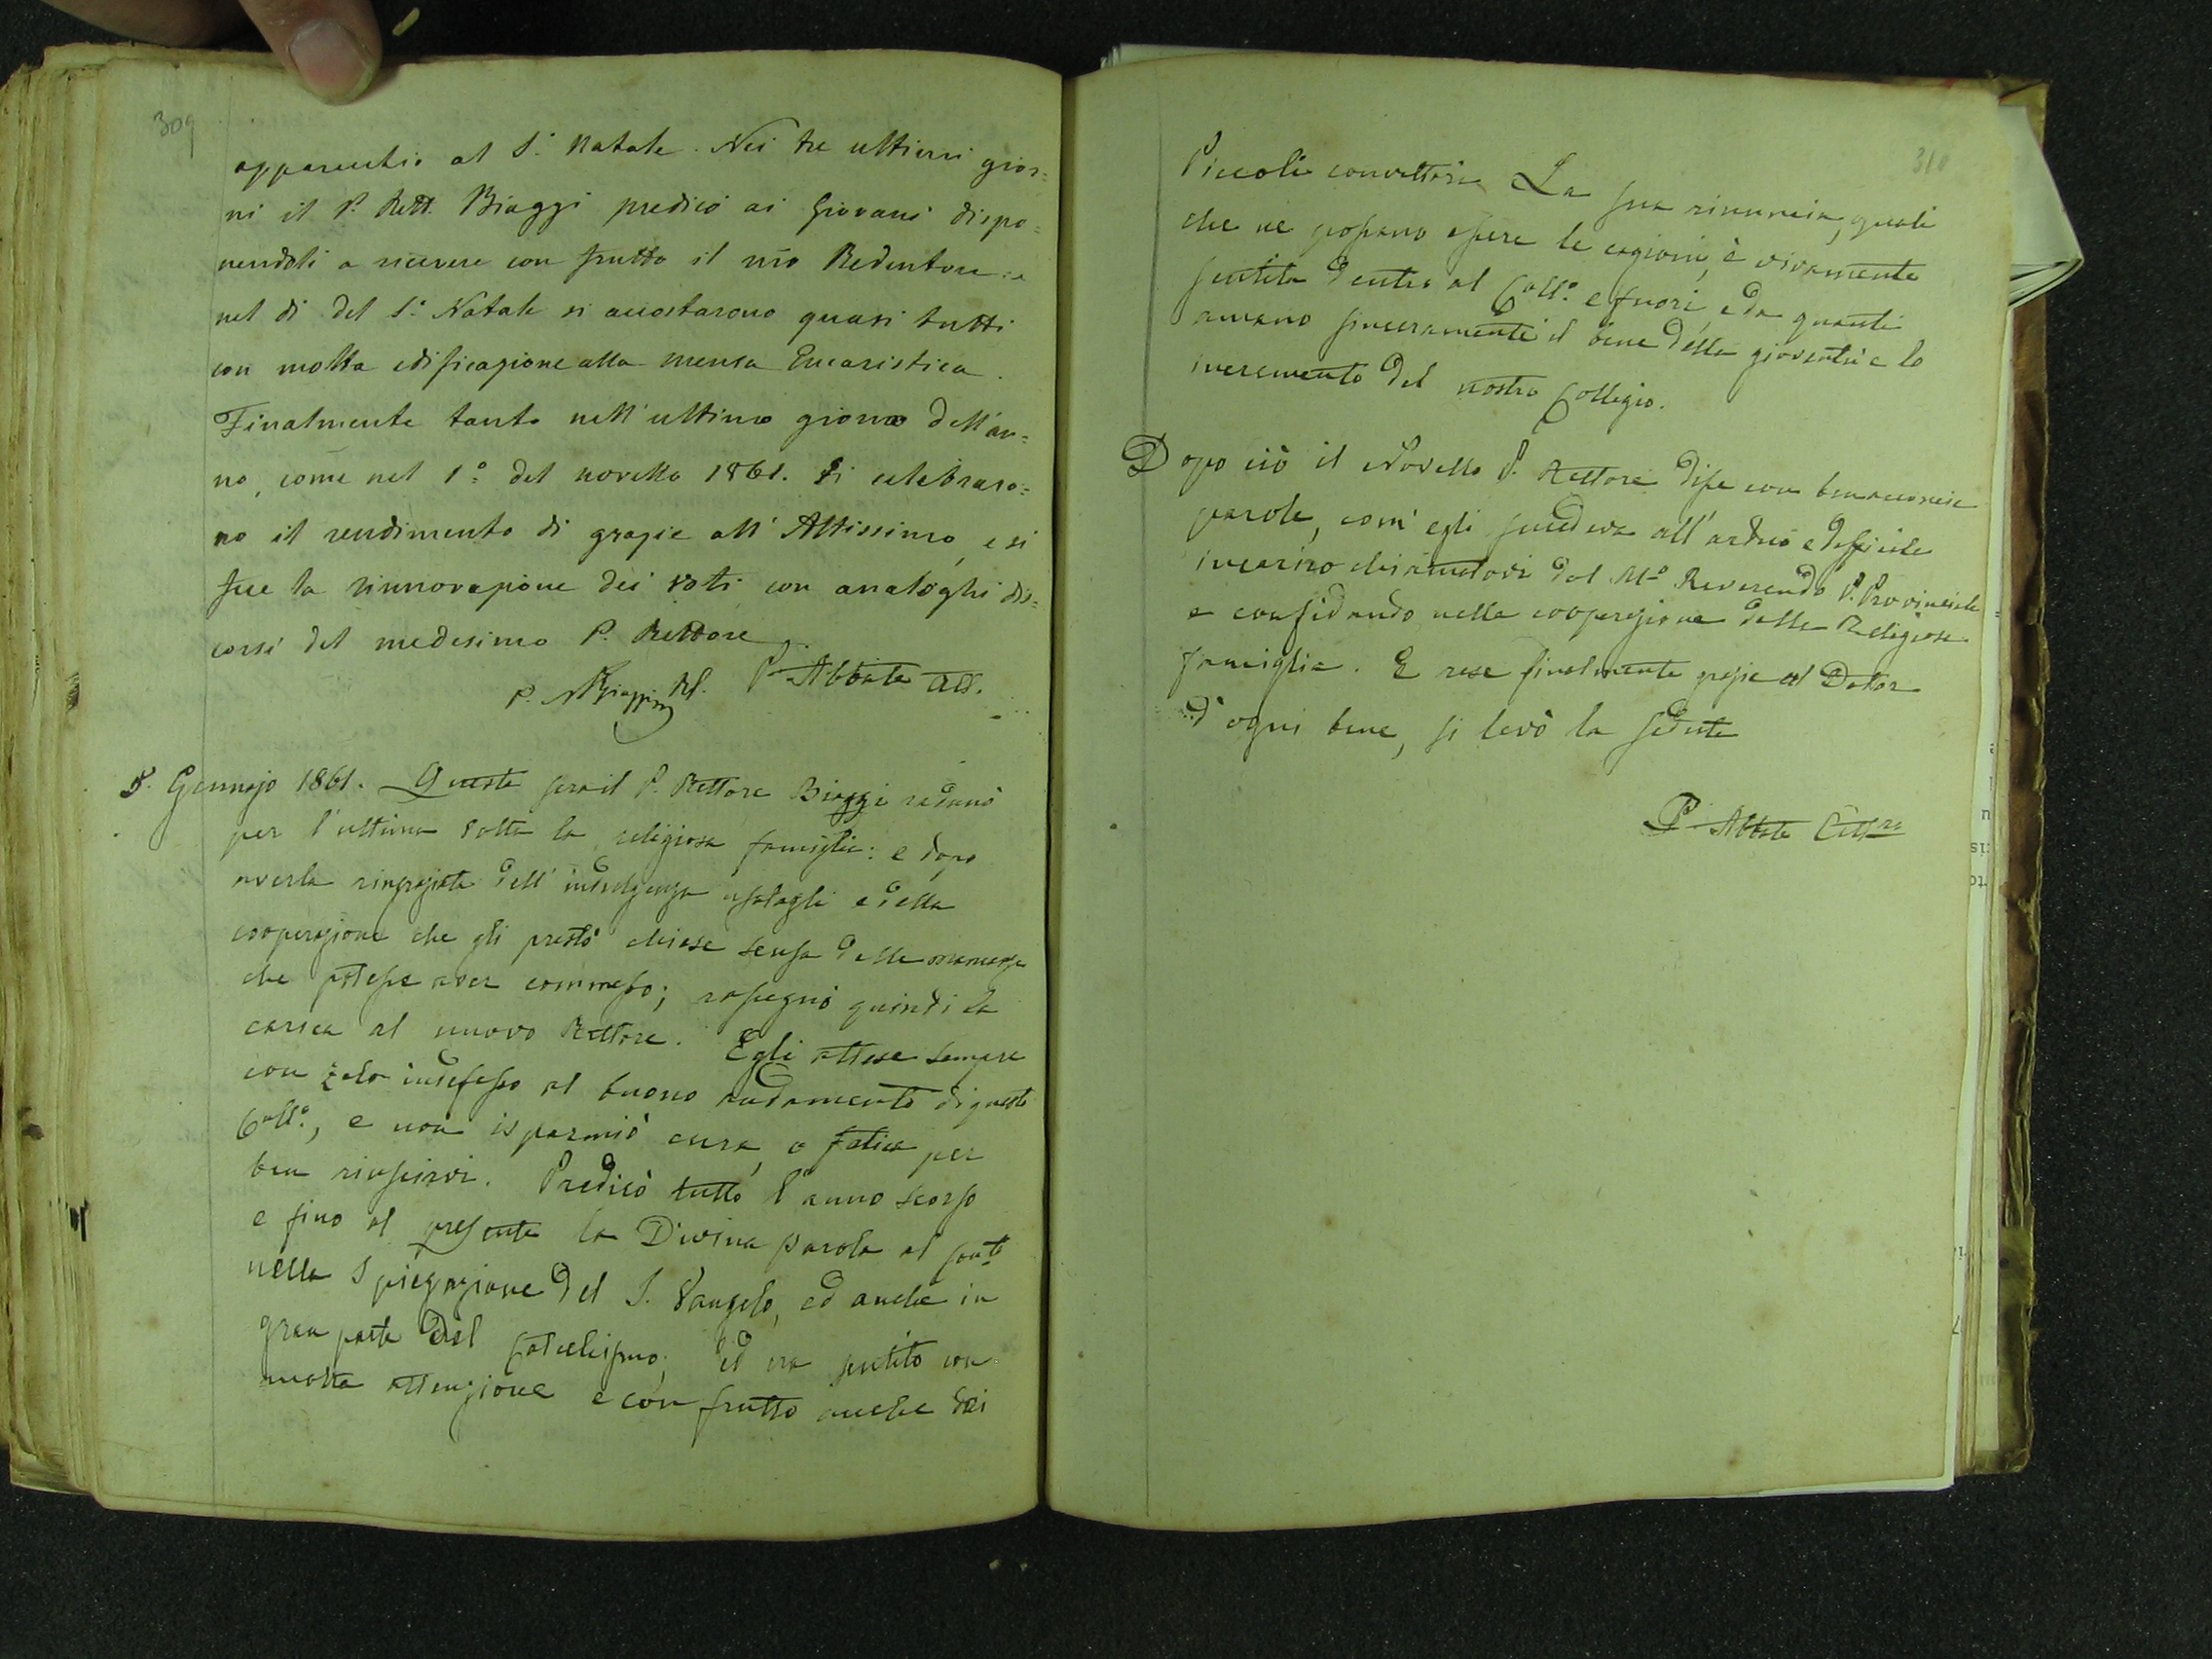 309
apparecchio al S. Natale. Nei tre ultimi gior=
ni il P. Rett. Biaggi predicò ai Giovani dispo=
nendoli a ricevere con frutto il nro Redentore: e
nel dì del S. Natale si accostarono quasi tutti
con molta edificazione alla mensa Eucaristica.
Finalmente tanto nell'ultimo giorno dell'an=
no, come nel 1° del novello 1861. si celebraro=
no il rendimento di grazie all'Altissimo, e si
fece la rinnovazione dei voti con analoghi dis=
corsi del medesimo P. Rettore.
P. Biaggi P. Abbate
5. Gennajo 1861. Questa sera il P. Rettore Biaggi radunò
per l'ultima volta la religiosa famiglia: e dopo
averla ringraziata dell'indulgenza usatagli e della
cooperazione che gli prestò chiese scusa delle mancanze
che potesse aver commesso; rassegnò quindi la
carica al nuovo Rettore. Egli attese sempre
con zelo indefesso al buono andamento di questo
Coll°, e non isparmiò cura, o fatica per
ben riuscirvi. Predicò tutto l'anno scorso
e fino al presente la Divina parola al
nella Spiegazione del S. Vangelo, ed anche in
gran parte del Catechismo; ed era sentito con
molta attenzione e con frutto anche dai
310
Piccoli convittori. La sua rinuncia, quali
che ne possano essere le cagioni, è vivamente
sentita dentro al Coll° e fuori, e da quanti
amano sinceramente il bene della gioventù e lo
incremento del nostro Collegio.
Dopo ciò il Novello P. Rettore disse con
parole, com'egli succedeva all'arduo e difficile
incarico chiamatovi dal M° Reverendo P. Provinciale
e confidando nella cooperazione della Religiosa
famiglia. E rese finalmente grazie al Dator
d'ogni bene, si levò la seduta
P. Abbate